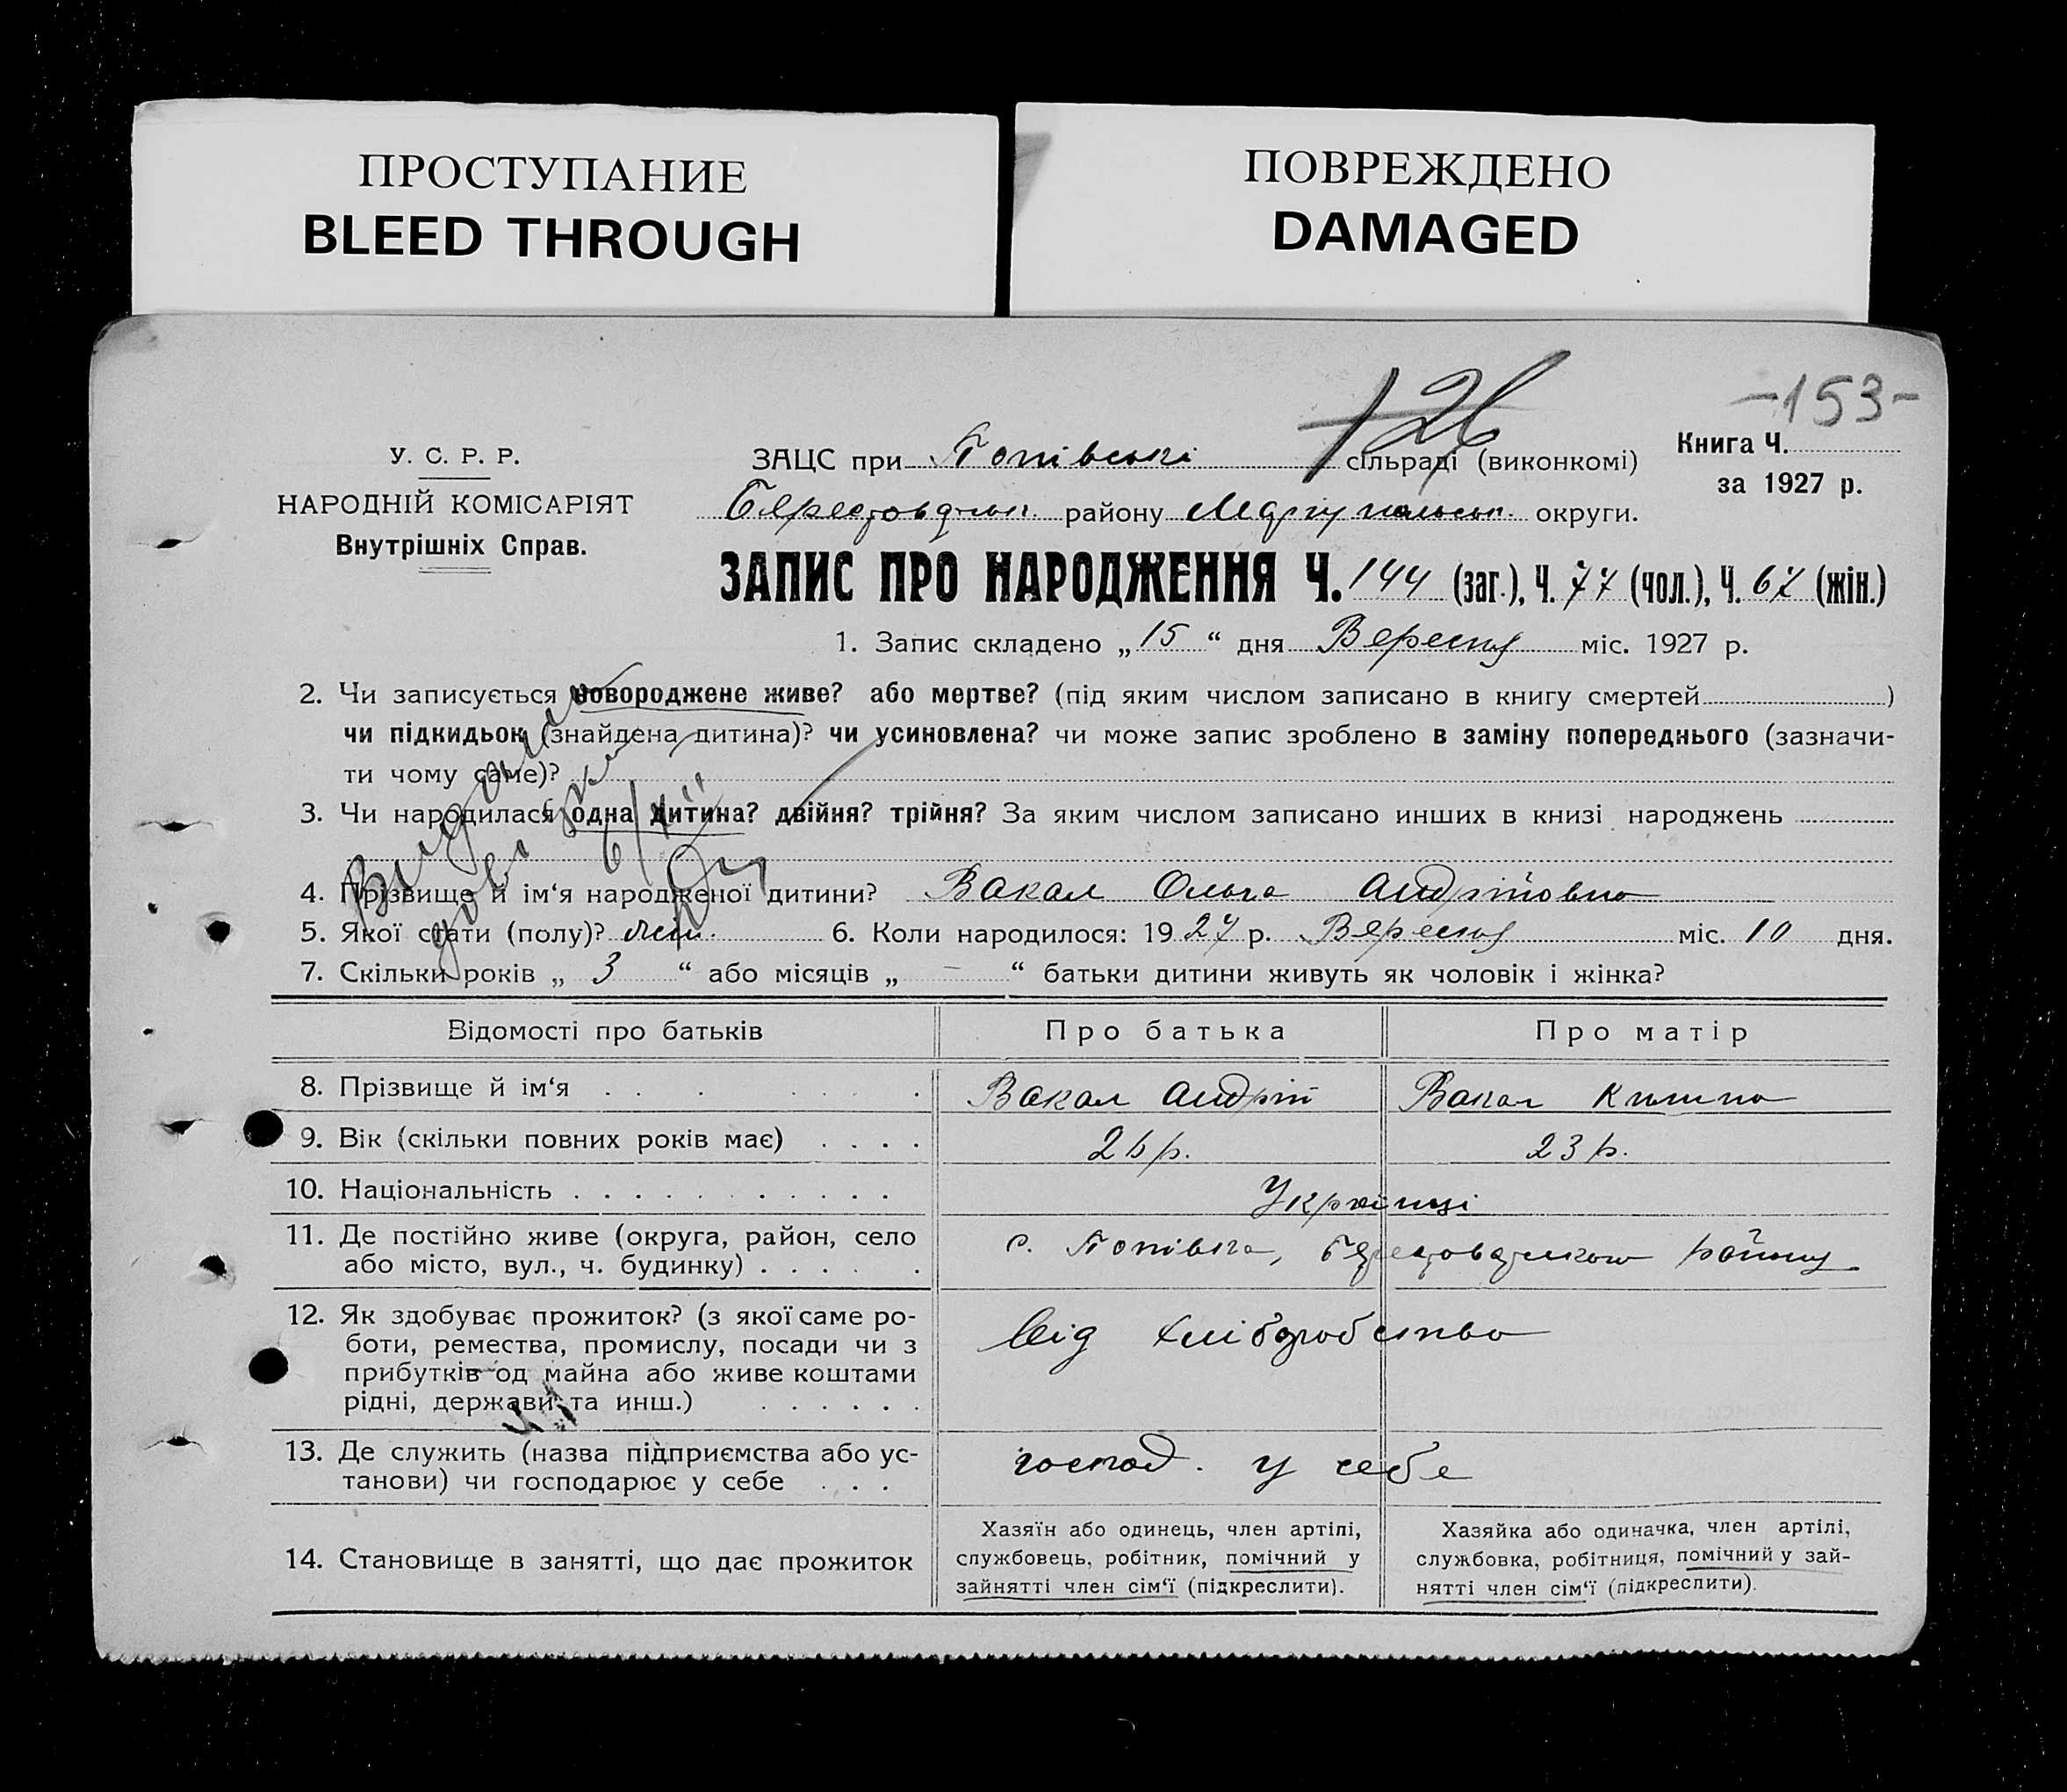 ПРОСТУПАНИЕ
BLEED THROUGH
ПОВРЕЖДЕНО
DAMAGED
126
-153-
У. С. Р. Р.
НАРОДНІЙ КОМІСАРІЯТ
Внутрішніх Справ.
ЗАЦС при Попівські сільраді (виконкомі)
Книга Ч.
за 1927 р.
району округи.
ЗАПИС ПРО НАРОДЖЕННЯ Ч. 144 (заг.), Ч. 77 (чол.), Ч. 67 (жін.)
1. Запис складено „ 15 “ дня Вересня міс. 1927 р.
2. Чи записується новороджене живе? або мертве? (під яким числом записано в книгу смертей )
чи підкидьок (знайдена дитина)? чи усиновлена? чи може запис зроблено в заміну попереднього (зазначи-
ти чому саме)?
3. Чи народилася одна дитина? двійня? трійня? За яким числом записано инших в книзі народжень
4. Прізвище й ім‘я народженої дитини? Вакал Ольга Андріївна
5. Якої стати (полу)? жін. 6. Коли народилося: 1927 р. Вересня міс. 10 дня.
7. Скільки років „ 3 “ або місяців „ – “ батьки дитини живуть як чоловік і жінка?
Видана
6/XII
Відомості про батьків Про батька Про матір
8. Прізвище й ім‘я . . . . . . . Вакал Андрій Вакал
9. Вік (скільки повних років має) . . . . 26 р. 23 р.
10. Національність . . . . . . . . . . . Українці
11. Де постійно живе (округа, район, село
або місто, вул., ч. будинку) . . . . . .
с. Попівка, району
12. Як здобуває прожиток? (з якої саме ро-
боти, ремества, промислу, посади чи з
прибутків од майна або живе коштами
рідні, держави та инш.) . . . . . .
Від хліборобства
13. Де служить (назва підприємства або ус-
танови) чи господарює у себе . . .
господ. у себе
14. Становище в занятті, що дає прожиток
Хазяїн або одинець, член артілі,
службовець, робітник, помічний у
зайнятті член сім‘ї (підкреслити).
Хазяйка або одиначка, член артілі,
службовка, робітниця, помічний у зай-
нятті член сім‘ї (підкреслити).